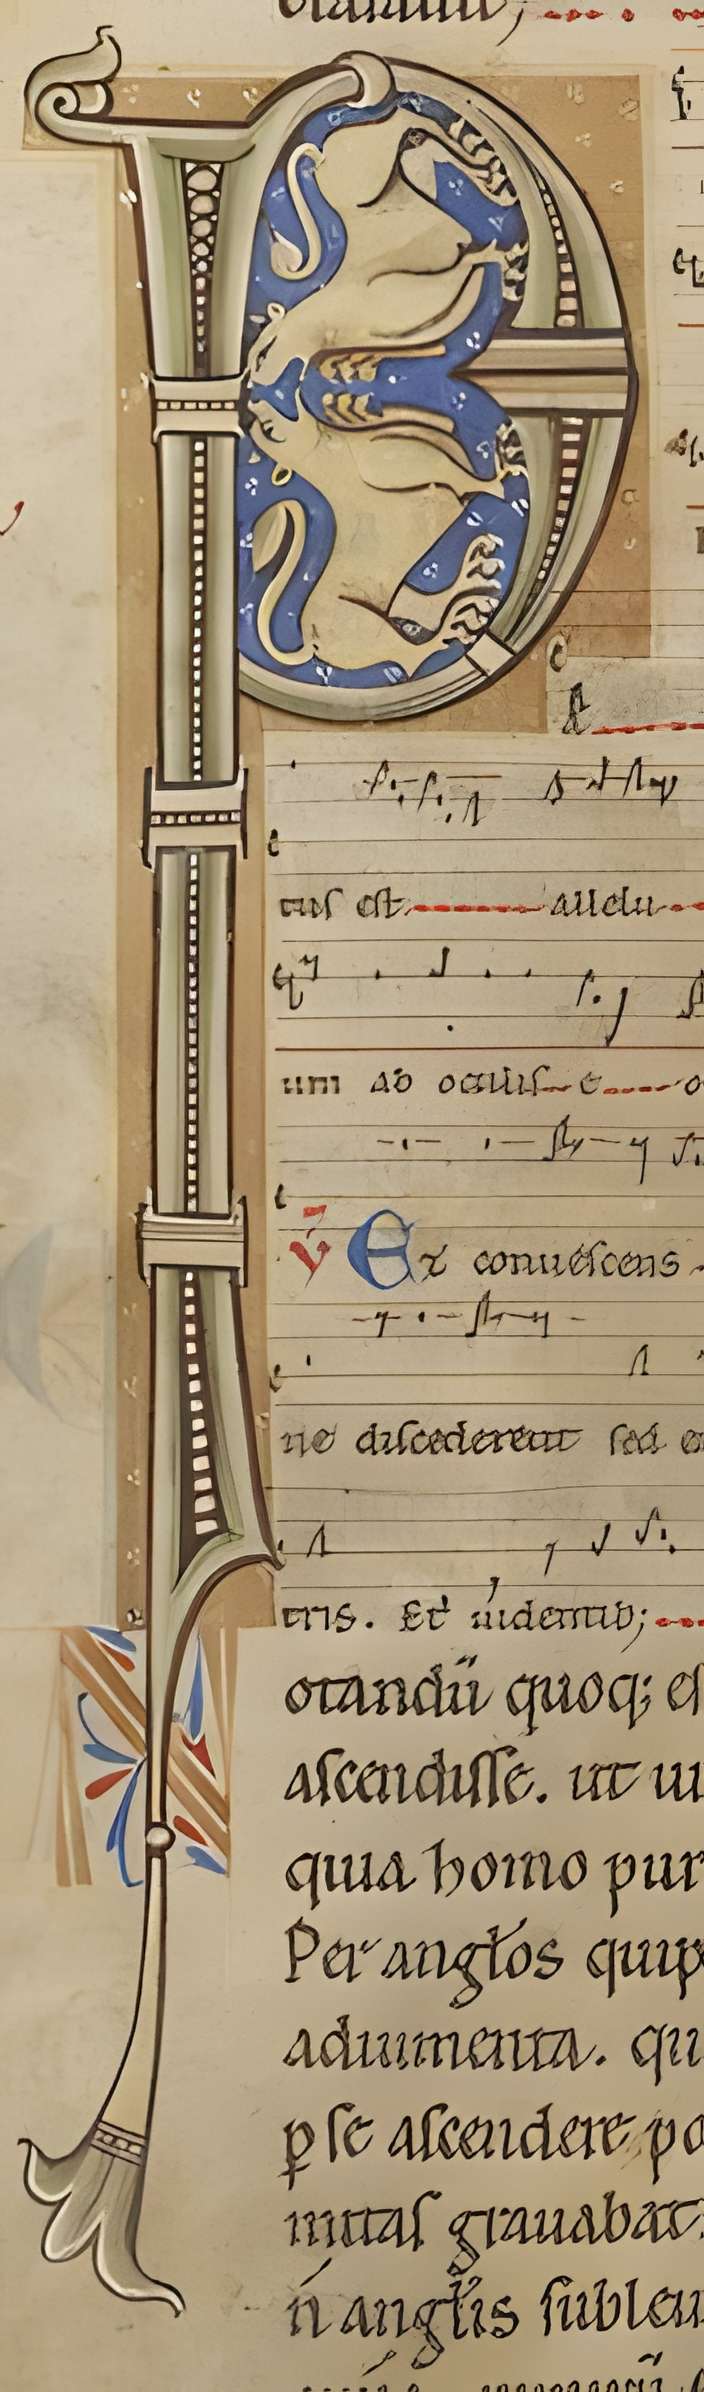 P
tus est allelu
um ab oculis e o
V Et conuescens
ne discederent sed
tris. Et uidentib;
otandū quoq; es
ascendisse. ut ui
quia homo pur
Per angłos quip
adiumenta. qu
ꝑ se ascendere po
mitas grauabat.
n̄ angłis subleu